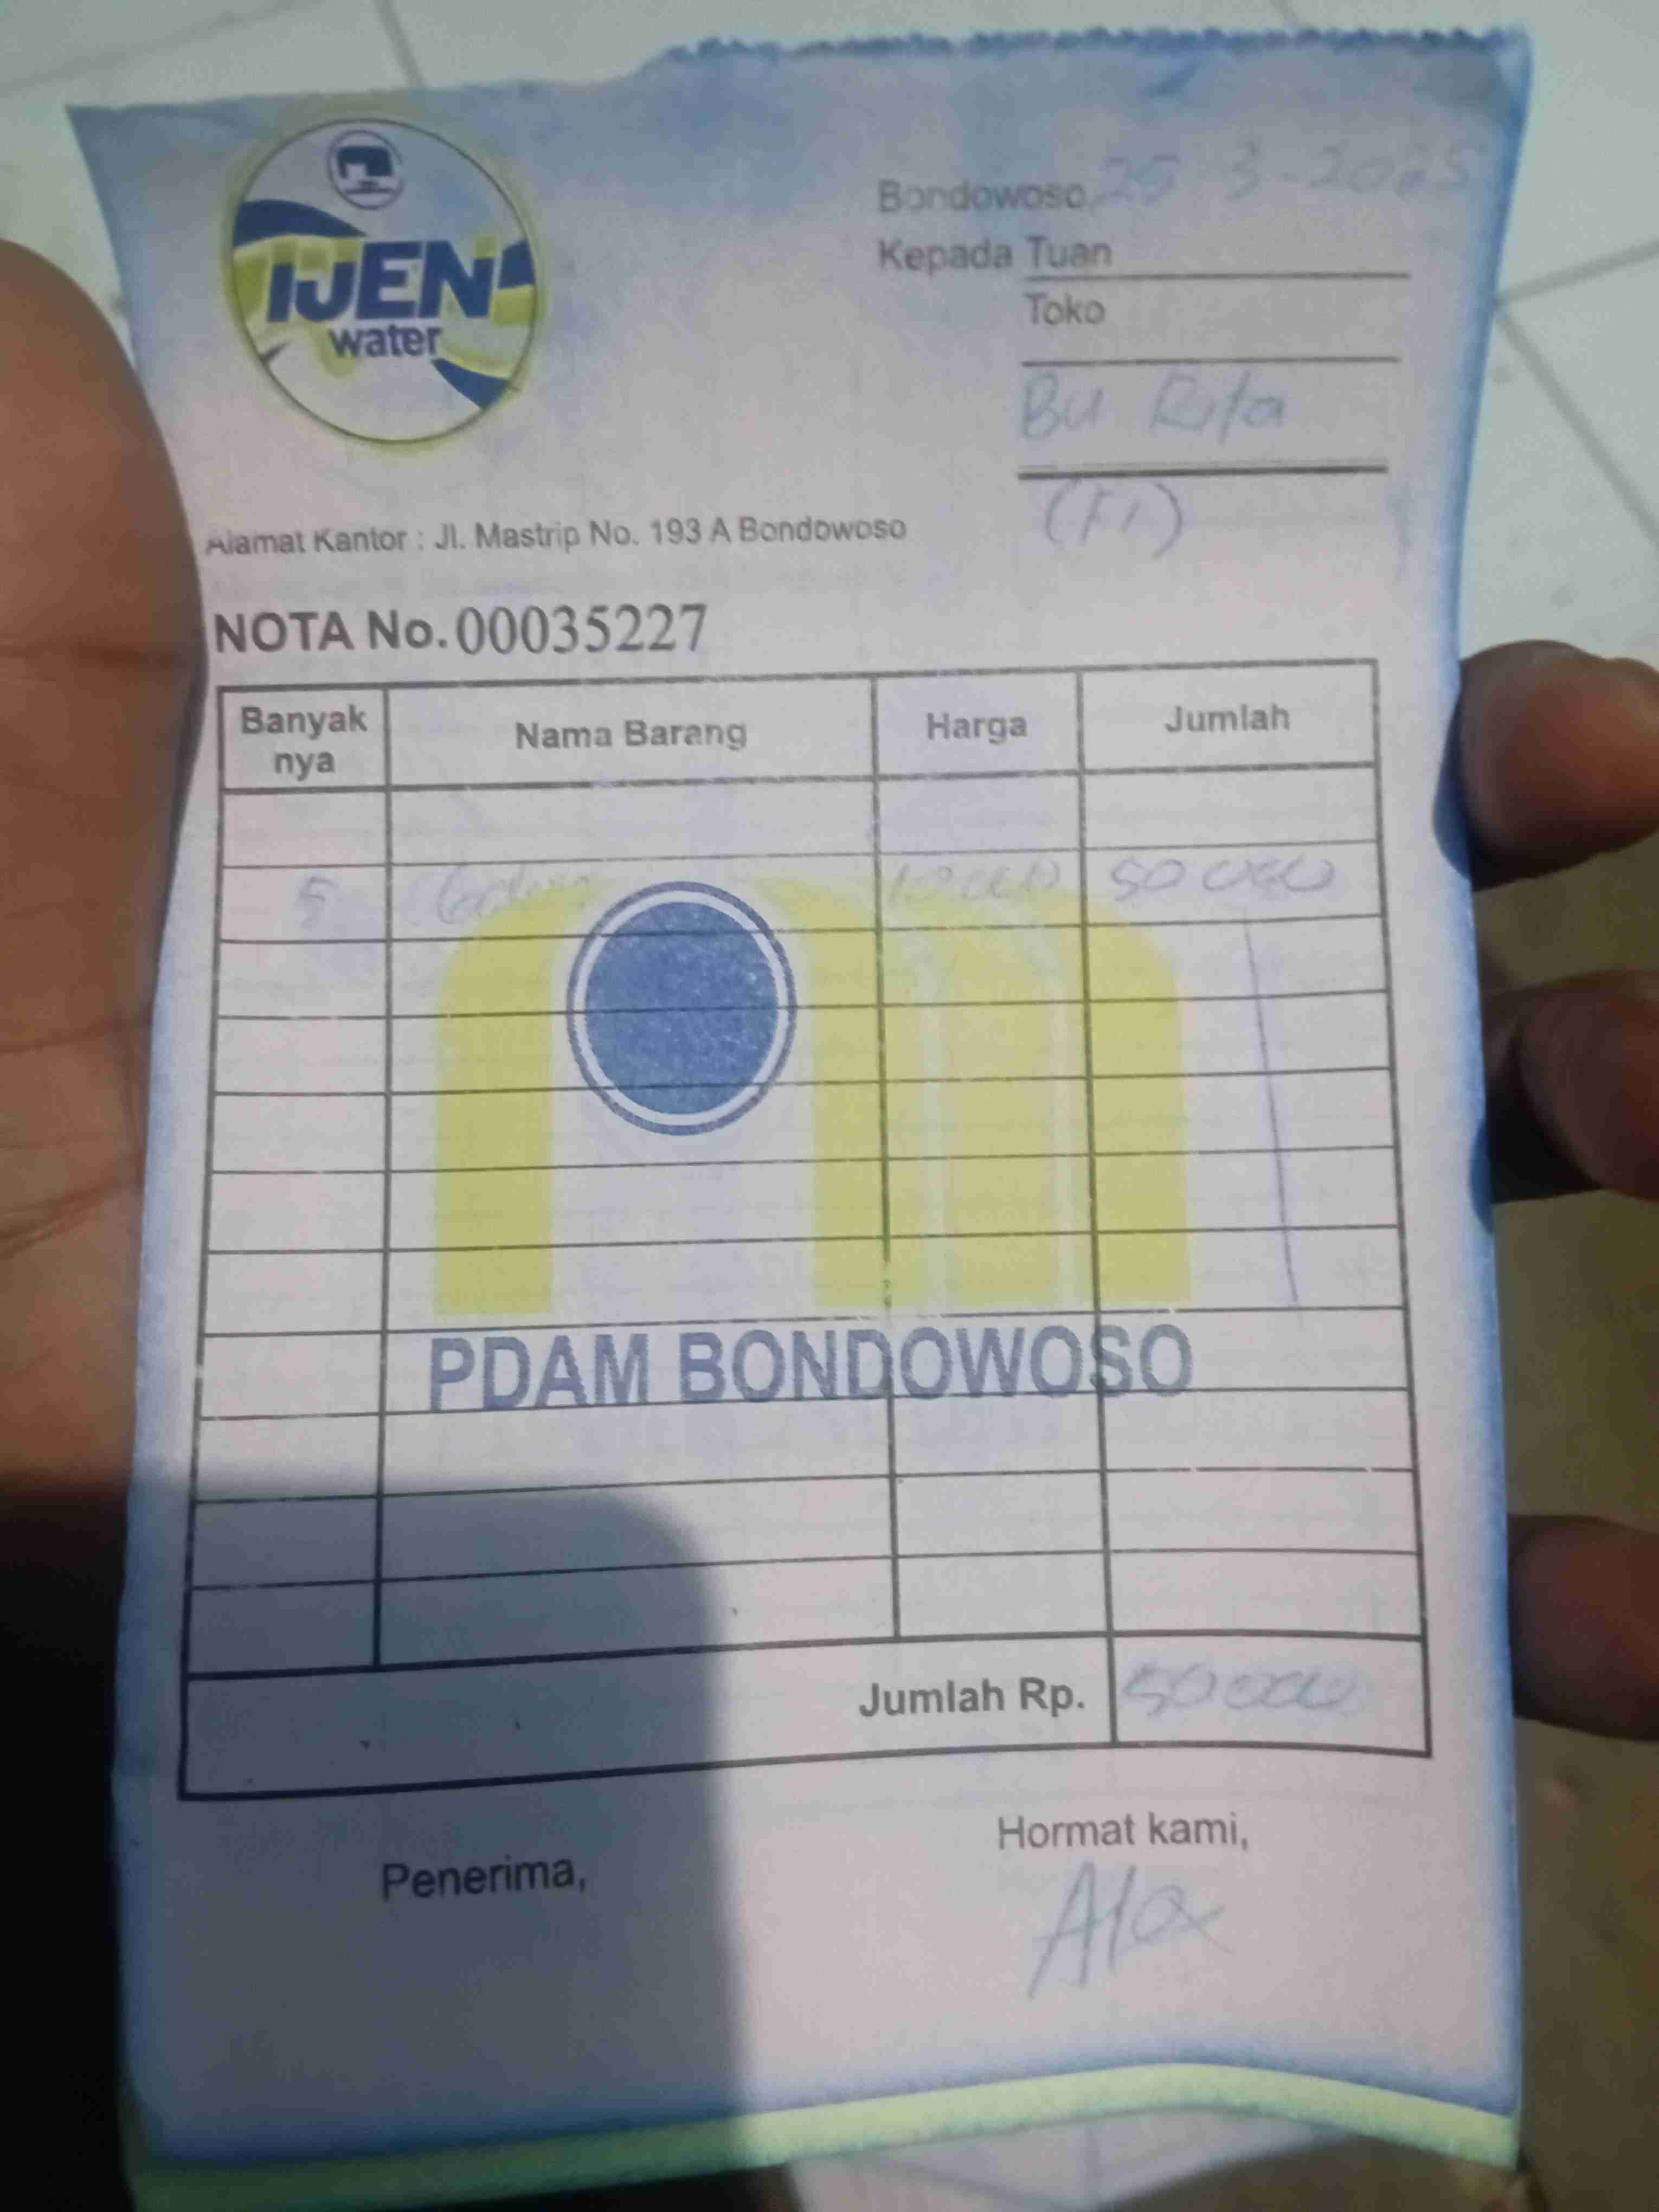 IJEN
water
Bondowoso, 25 3-2025
Kepada Tuan
Toko
Bu Rita
(F1)
Alamat Kantor : Jl. Mastrip No. 193 A Bondowoso
NOTA No. 00035227
Banyak nya Nama Barang Harga Jumlah
5 10 000 50 000
PDAM BONDOWOSO
Jumlah Rp. 50 000
Penerima, Hormat kami,